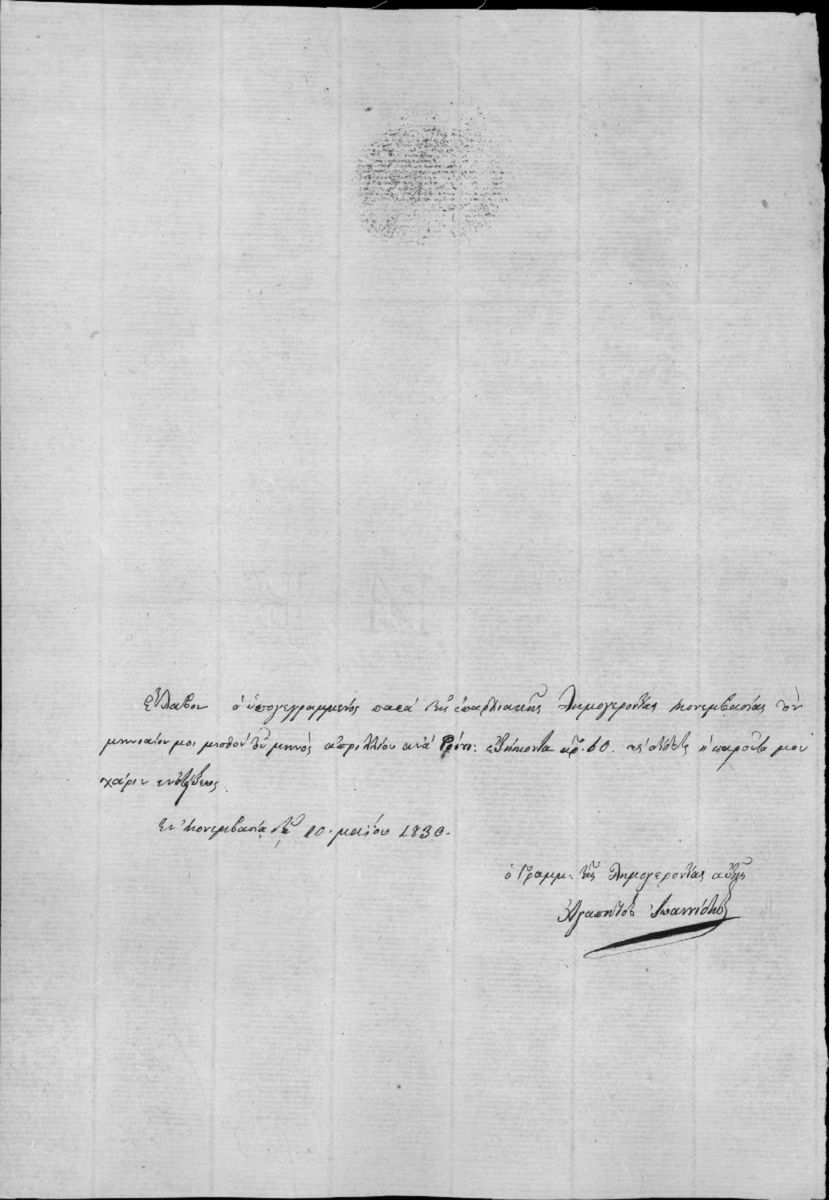 Ἔλαβον ὁ ὑπογεγραμμένος παρὰ τῆς ἐπαρχιακῆς Δημογεροντίας Μονεμβασίας τὸν
μηνιαῖον μοι μισθὸν τοῦ μηνὸς ἀπριλλίου ἀνὰ ἑξήκοντα ἀρ. 60. ἡ παροῦσα μου
χάριν ἐνδείξεως.
Ἐν Μονεμβασίᾳ τῇ 10. μαΐου 1830.
ὁ Γραμμ: τῆς Δημογεροντίας αὐτῆς
Ἀγαπητὸς Ἰωαννίδης